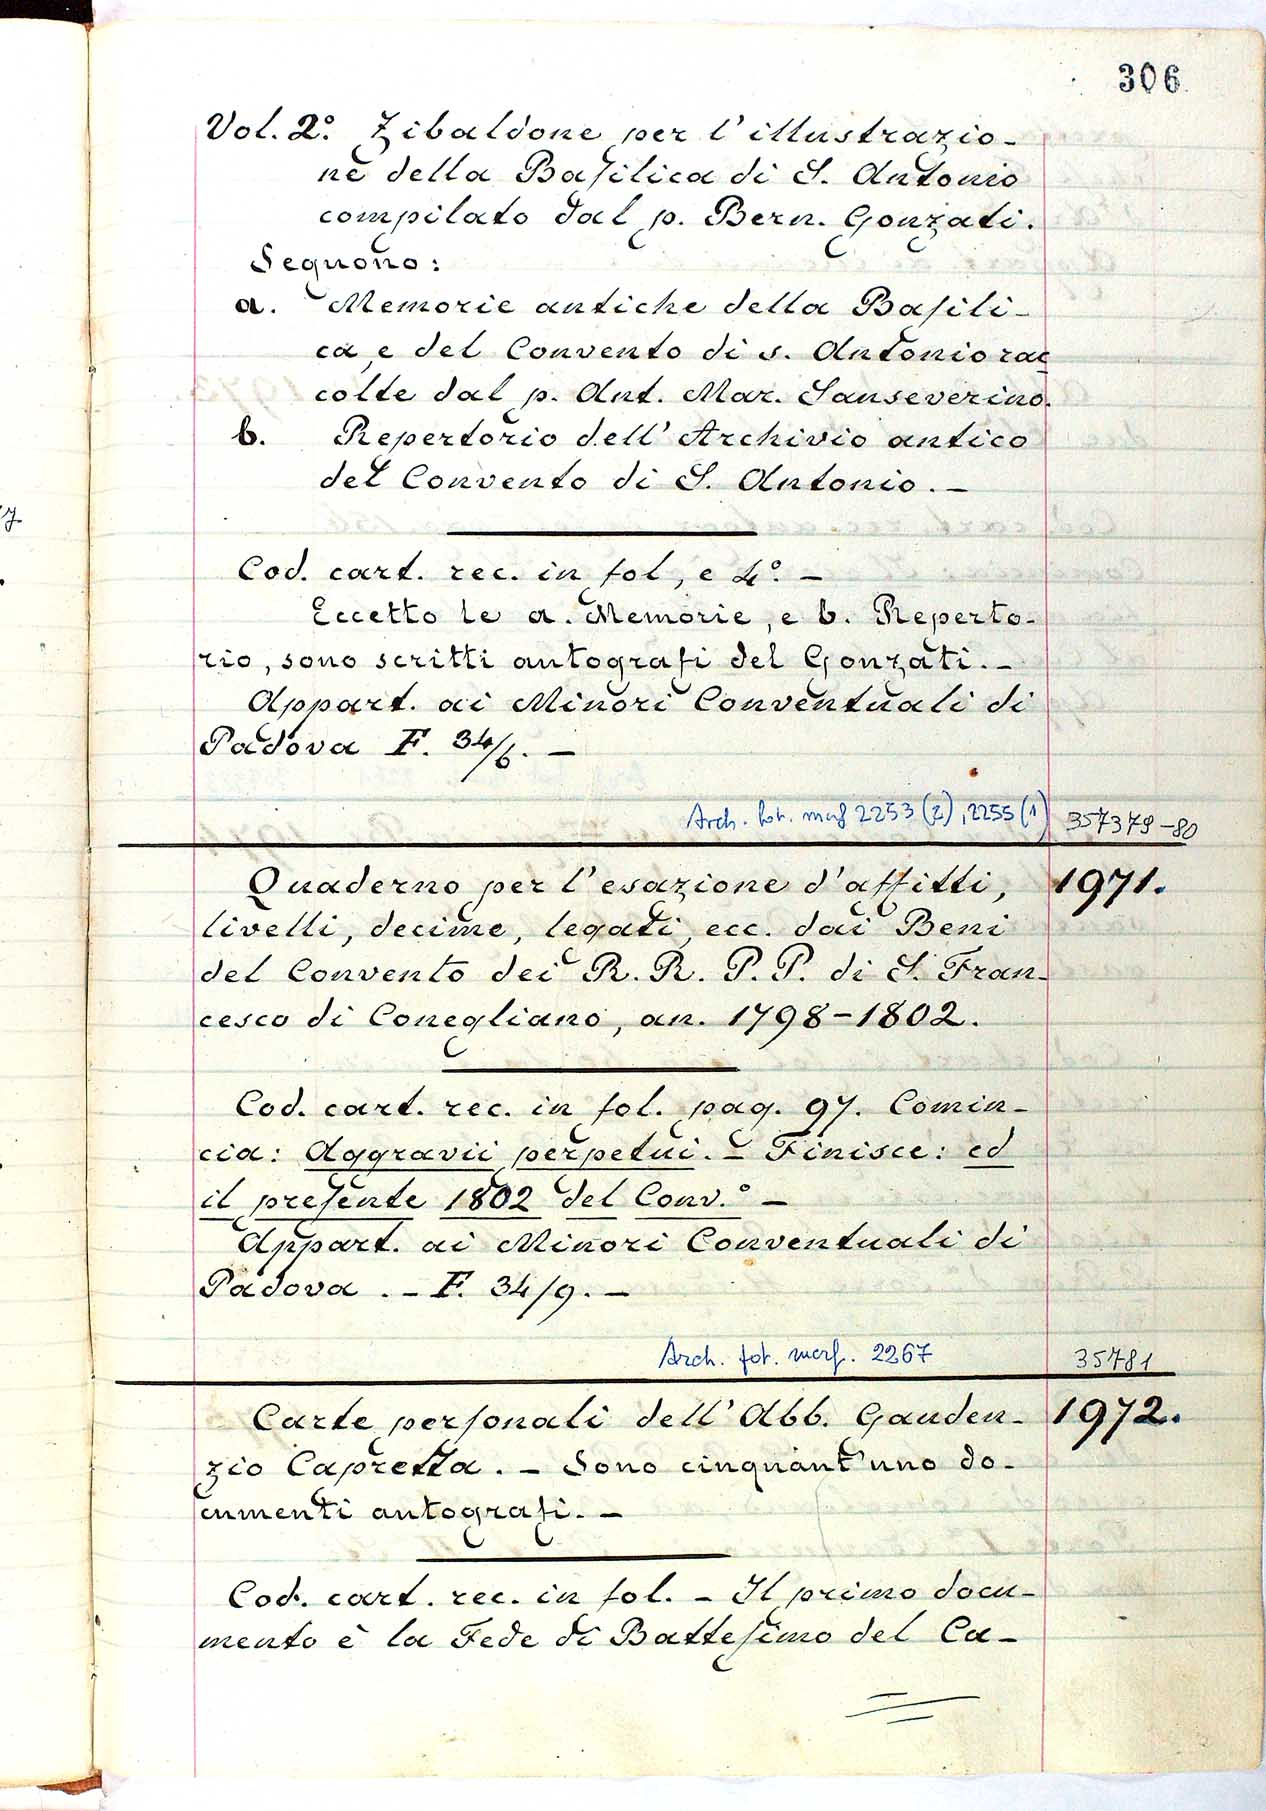 306
Vol. 2.° Zibaldone per l'illustrazio-
ne della Baſilica di S. Antonio
compilato dal p. Bern. Gonzati.
Seguono:
a. Memorie antiche della Baſili-
ca, e del Convento di s. Antonio rac
colte dal p. Ant. Mar. Sanseverino.
b. Repertorio dell' Archivio antico
del Convento di S. Antonio. –
Cod. cart. rec. in fol, e 4.° –
Eccetto le a. Memorie, e b. Reperto-
rio, sono scritti autografi del Gonzati. –
Appart. ai Minori Conventuali di
Padova F. 34/6. –
Arch. fot. marf 2253 (2), 2255 (1) 357379-80
Quaderno per l'esazione d'affitti, 1971.
livelli, decime, legati, ecc. dai Beni
del Convento dei R. R. P. P. di S. Fran-
cesco di Conegliano, an. 1798-1802.
Cod. cart. rec. in fol. pag. 97. Comin-
cia: Aggravii perpetui. – Finisce: ed
il preſente 1802 del Conv.° –
Appart. ai Minori Conventuali di
Padova. – F. 34/9. –
Arch. fot. marf. 2267 35781
Carte perſonali dell' Abb. Gauden- 1972.
zio Capretta. – Sono cinquant'uno do-
cumenti autografi. –
Cod. cart. rec. in fol. – Il primo docu-
mento è la Fede di Batteſimo del Ca-